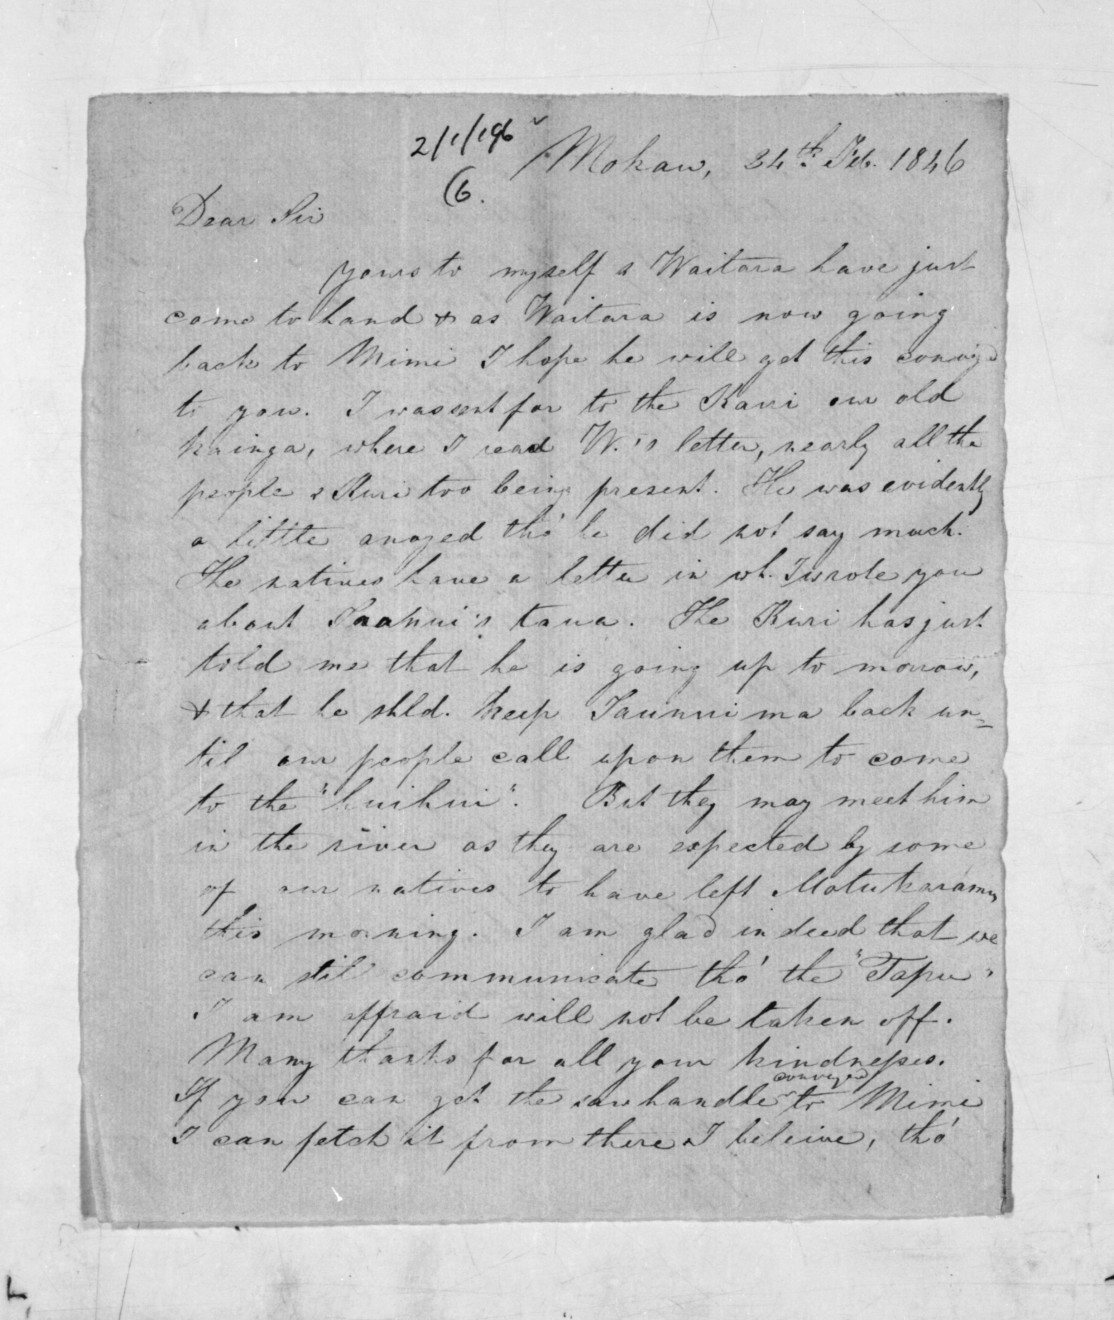 2/1/196
6.
Mokau, 24th. Feb. 1846
Dear Sir
yours to myself & Waitara have just
come to hand & as Waitara is now going
back to Mimi I hope he will get this convey'd
to you. I was sent for to the Kauri our old
kainga, where I read W.'s letter, nearly all the
people & Kuri too being present. He was evidently
a little angered tho' he did not say much.
The natives have a letter in wh. I wrote you
about Taonui's taua. The Kuri has just
told me that he is going up to morrow,
& that he shld. keep Taunuima back un-
til our people call upon them to come
to the "huihui". But they may meet him
in the river as they are expected by some
of our natives to have left Motukaramu
this morning. I am glad indeed that we
can still communicate tho' the "Tapu"
I am affraid will not be taken off.
Many thanks for all your kindnesses.
If you can get the saw handle conveyed to Mimi
I can fetch it from there I beleive, tho'